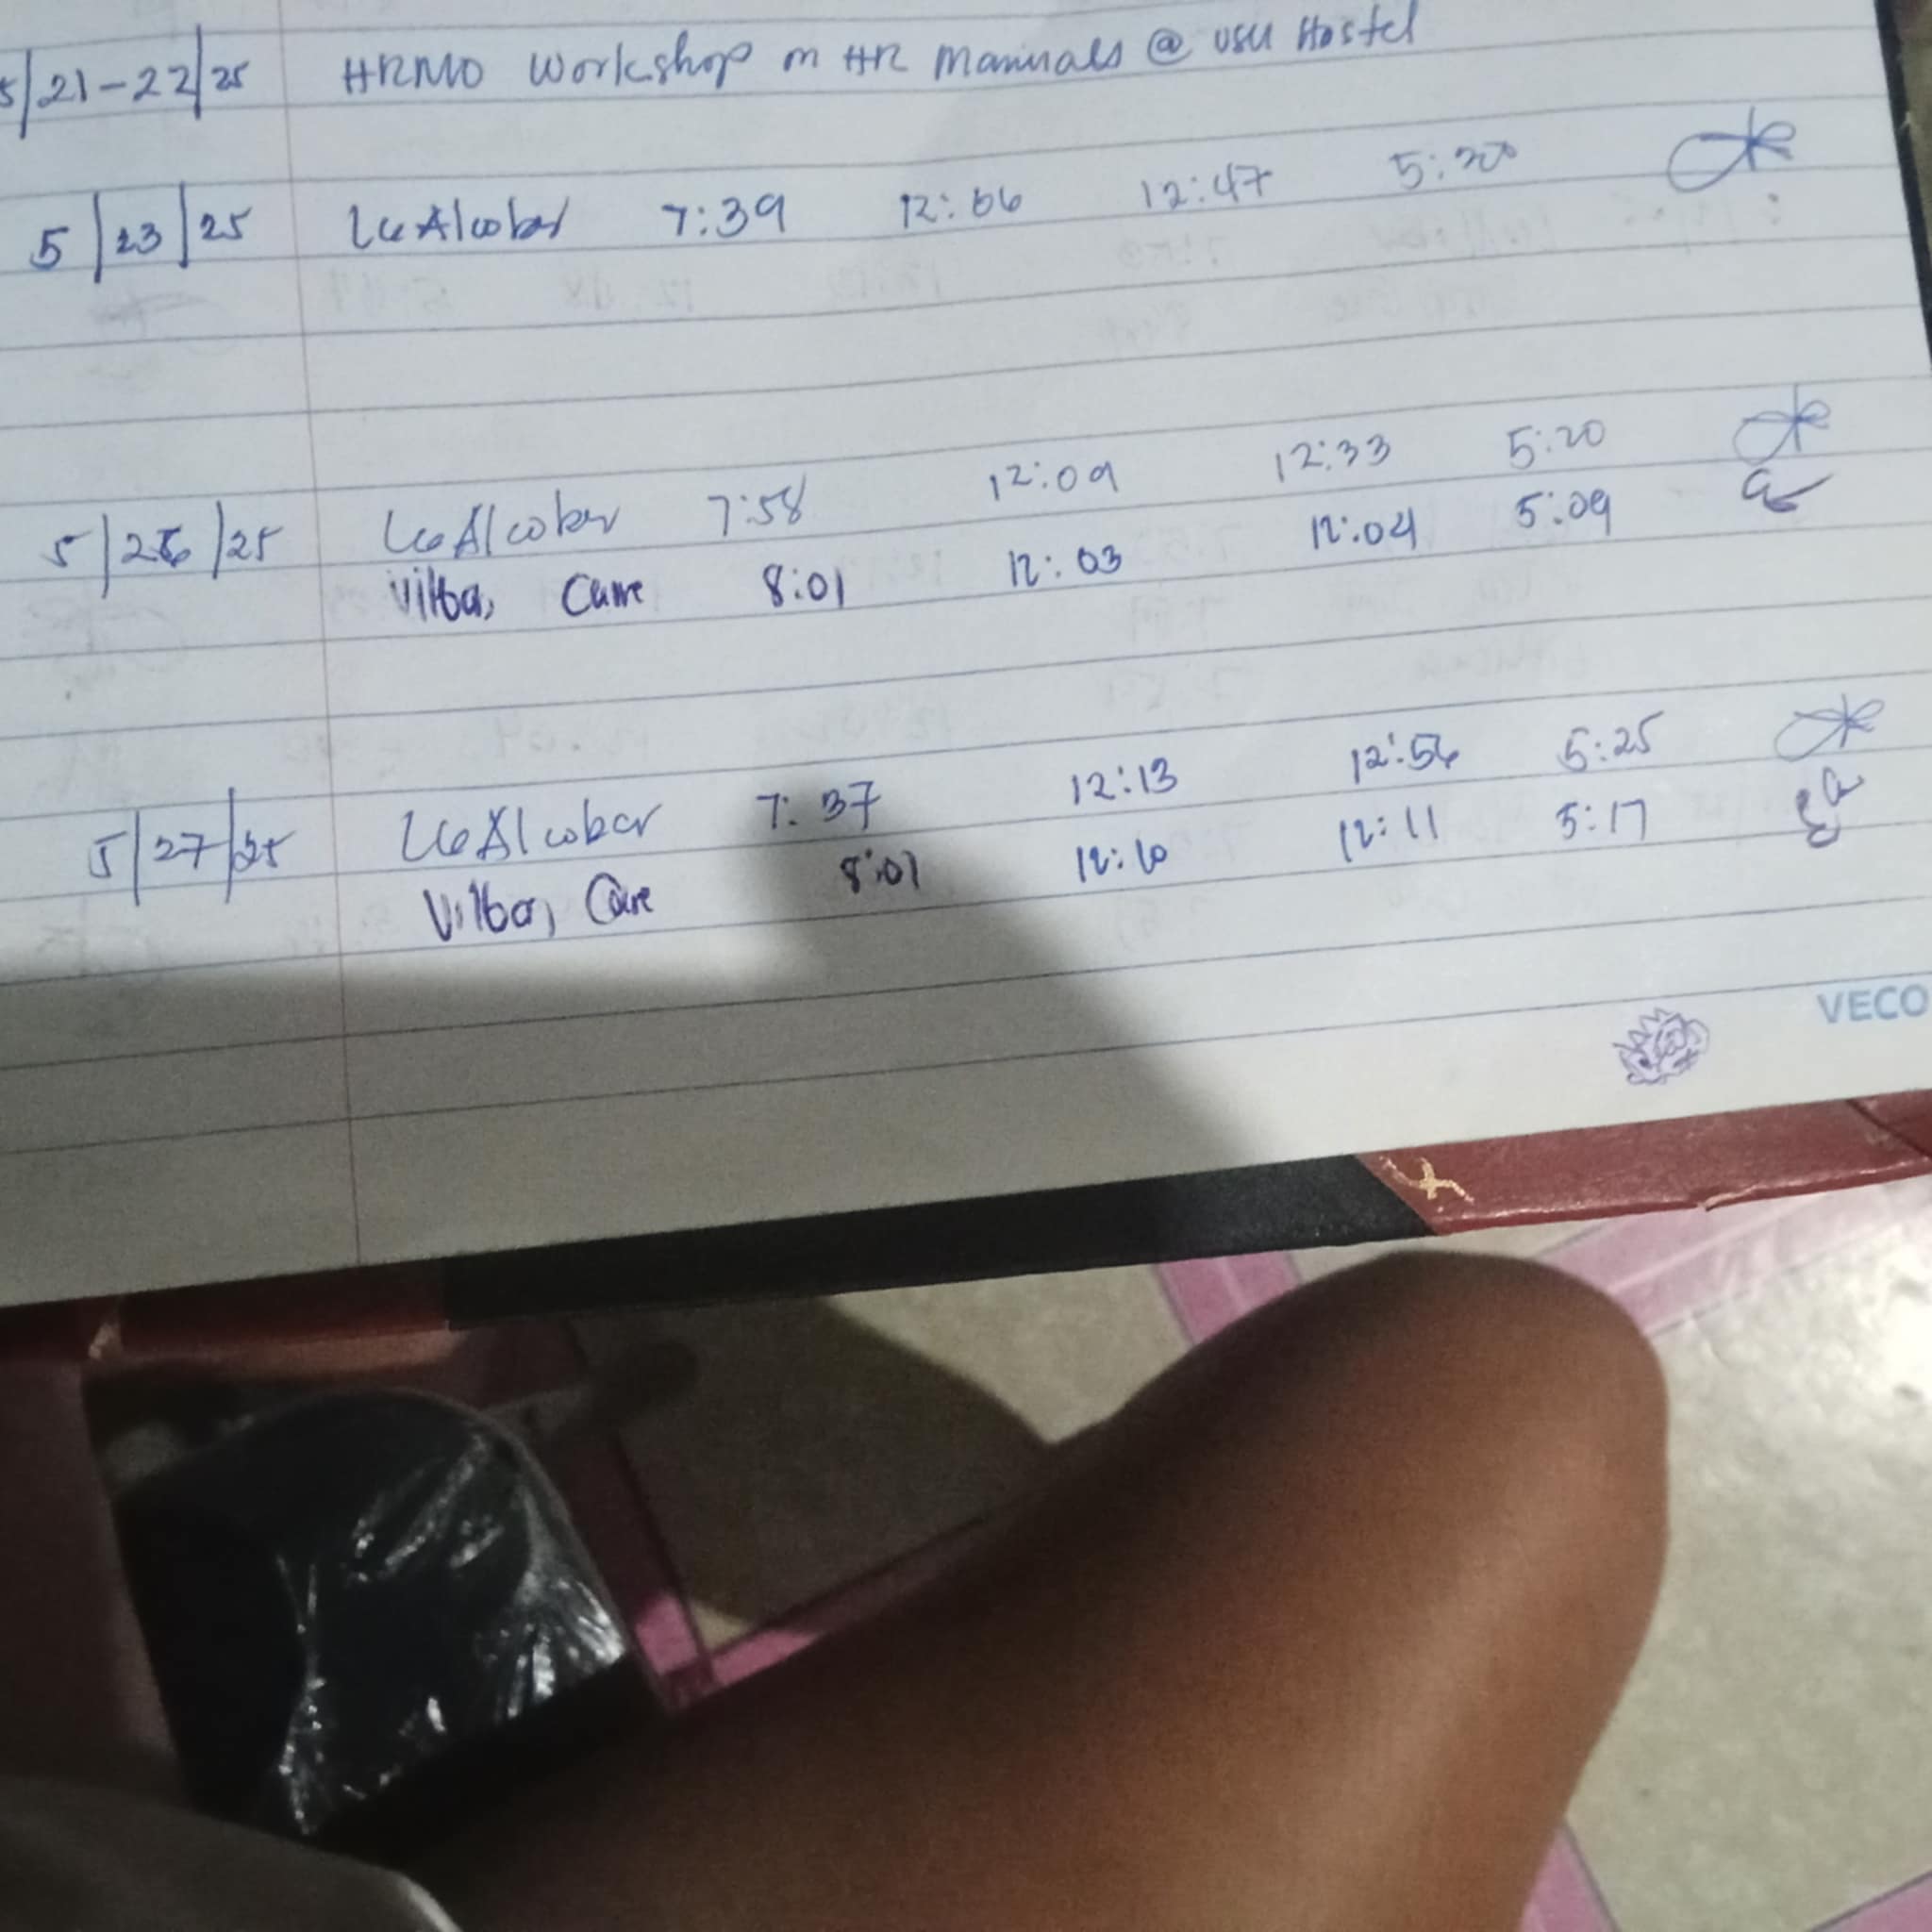 5/21-22/25 HRMO Workshop on HR Manuals @ VSU Hostel
5/23/25 LGAlcober 7:39 12:06 12:47 5:20
5/26/25 LGAlcober 7:58 12:09 12:33 5:20
Villba, 8:01 12:03 12:04 5:09
5/27/25 LGAlcober 7:37 12:13 12:56 5:25
8:01 12:10 12:11 5:17
VECO